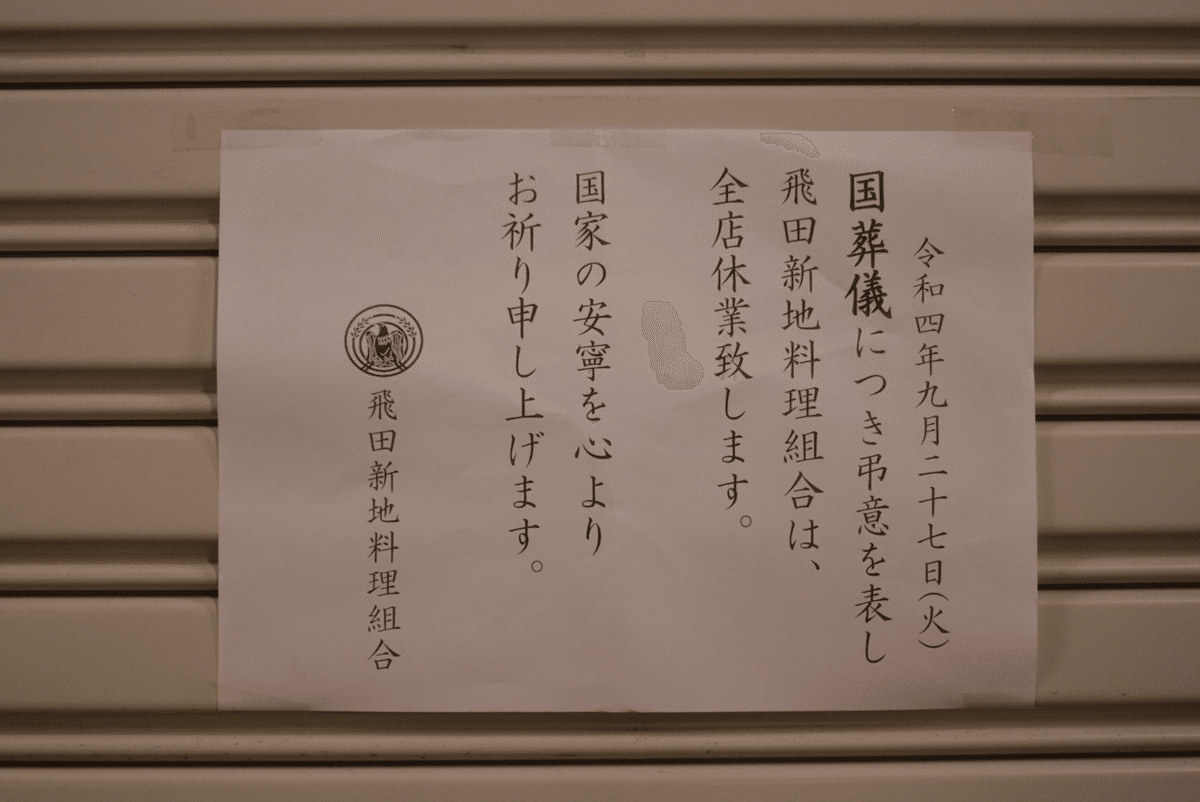 令和四年九月二十七日(火)
国葬儀につき弔意を表し
飛田新地料理組合は、
全店休業致します。
国家の安寧を心より
お祈り申し上げます。
飛田新地料理組合